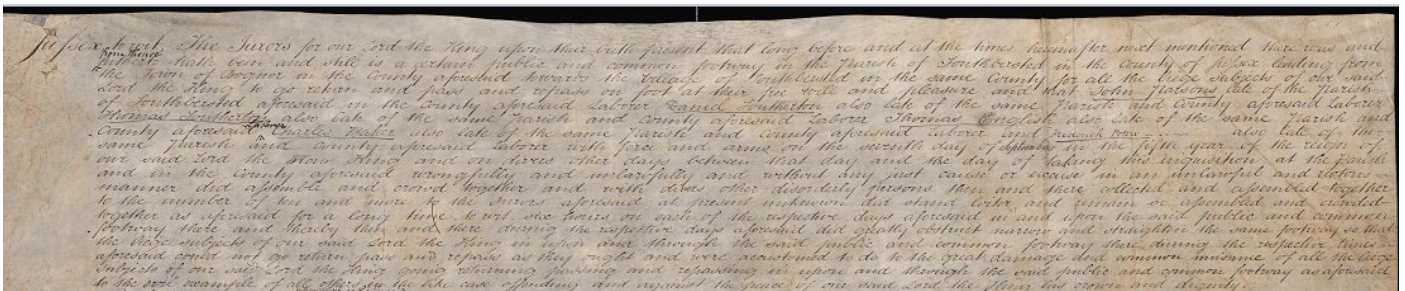 Sussex to wit. The Jurors for our Lord the King upon their oath present that long before and at the times hereinafter next mentioned there was and
from thence hitherto hath been and still is a certain public and common footway in the Parish of Southbersted in the County of Sussex leading from
the Town of Bognor in the County aforesaid towards the Village of Southbersted in the same County for all the liege subjects of our said
Lord the King to go return and pass and repass on foot at their free will and pleasure and that John Parsons late of the Parish
of Southbersted aforesaid in the County aforesaid Laborer Daniel Southerton also late of the same Parish and County aforesaid Laborer
Thomas Southerton also late of the same Parish and County aforesaid Laborer Thomas English also late of the same Parish and
County aforesaid Laborer Charles Baker also late of the same Parish and County aforesaid Laborer and Frederick also late of the
same Parish and County aforesaid Laborer with force and arms on the seventh day of September in the fifth year of the reign of
our said Lord the now King and on divers other days between that day and the day of taking this inquisition at the Parish
and in the County aforesaid wrongfully and unlawfully and without any just cause or excuse in an unlawful and riotous
manner did assemble and crowd together and with divers other disorderly persons then and there collected and assembled together
to the number of ten and more to the Jurors aforesaid at present unknown did stand loiter and remain so assembled and crowded
together as aforesaid for a long time to wit six hours on each of the respective days aforesaid in and upon the said public and common
footway there and thereby then and there during the respective days aforesaid did greatly obstruct narrow and straighten the same footway so that
the liege subjects of our said Lord the King in upon and through the said public and common footway there during the respective times
aforesaid could not go return pass and repass as they ought and were accustomed to do to the great damage and common nuisance of all the liege
subjects of our said Lord the King going returning passing and repassing in upon and through the said public and common footway as aforesaid
to the evil example of all others in the like case offending and against the peace of our said Lord the King his crown and dignity.